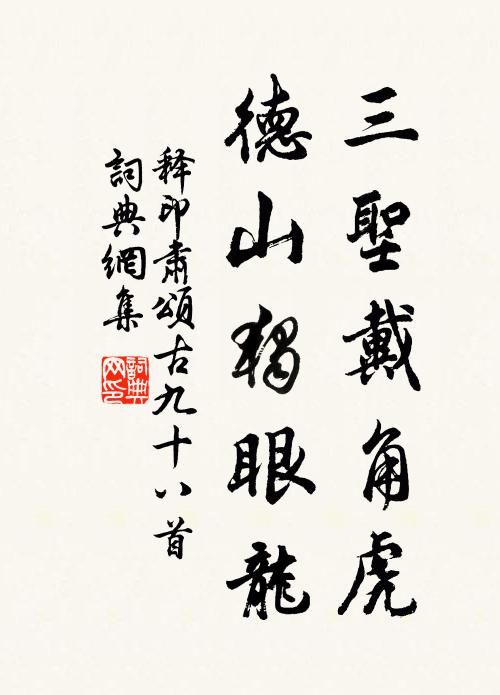 三聖戴角虎
德山獨眼龍
释印肅頌古九十八首
詞典網集
詞典
网印